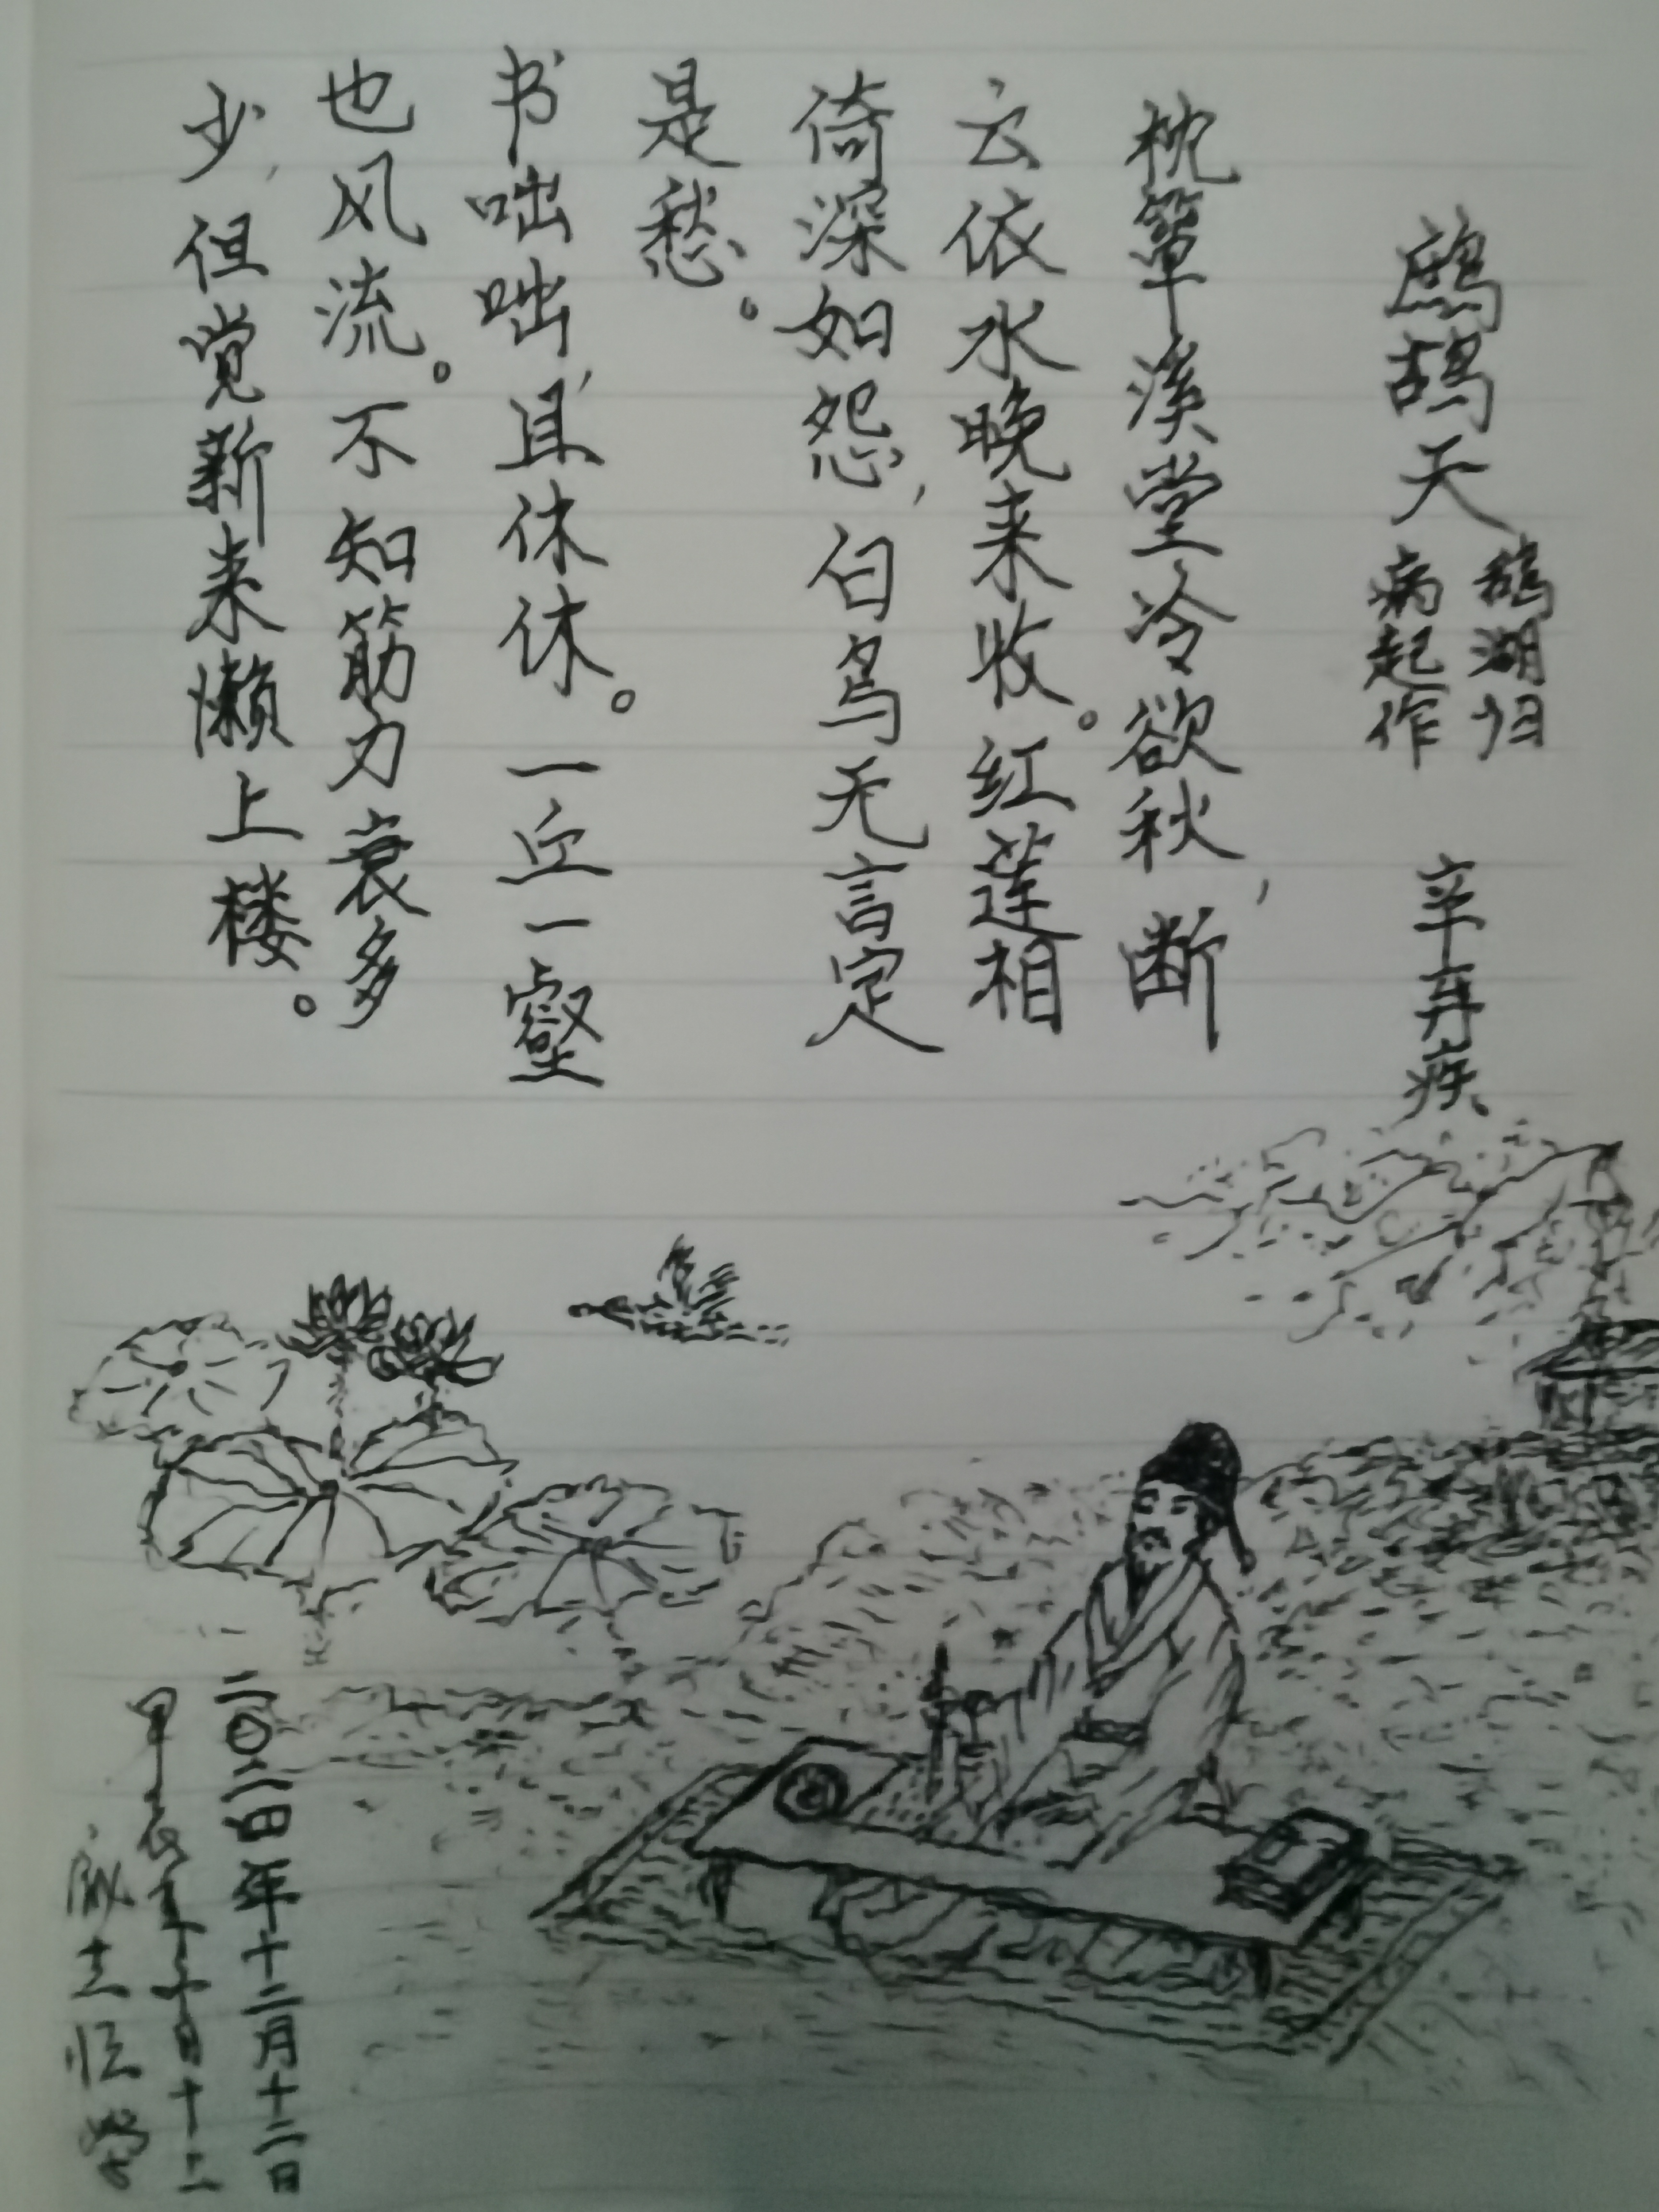 鹧鸪天
鹅湖归
病起作
辛弃疾
枕簟溪堂冷欲秋，断
云依水晚来收。红莲相
倚深如怨，白鸟无言定
是愁。
书咄咄，且休休。一丘一壑
也风流。不知筋力衰多
少，但觉新来懒上楼。
二〇二四年十二月十二日
甲辰年丁子月十二